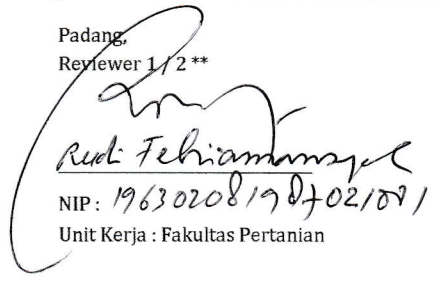 Padang,
Reviewer 1 / 2 **
Rudi Febriamansyah
NIP : 196302081987021001
Unit Kerja : Fakultas Pertanian